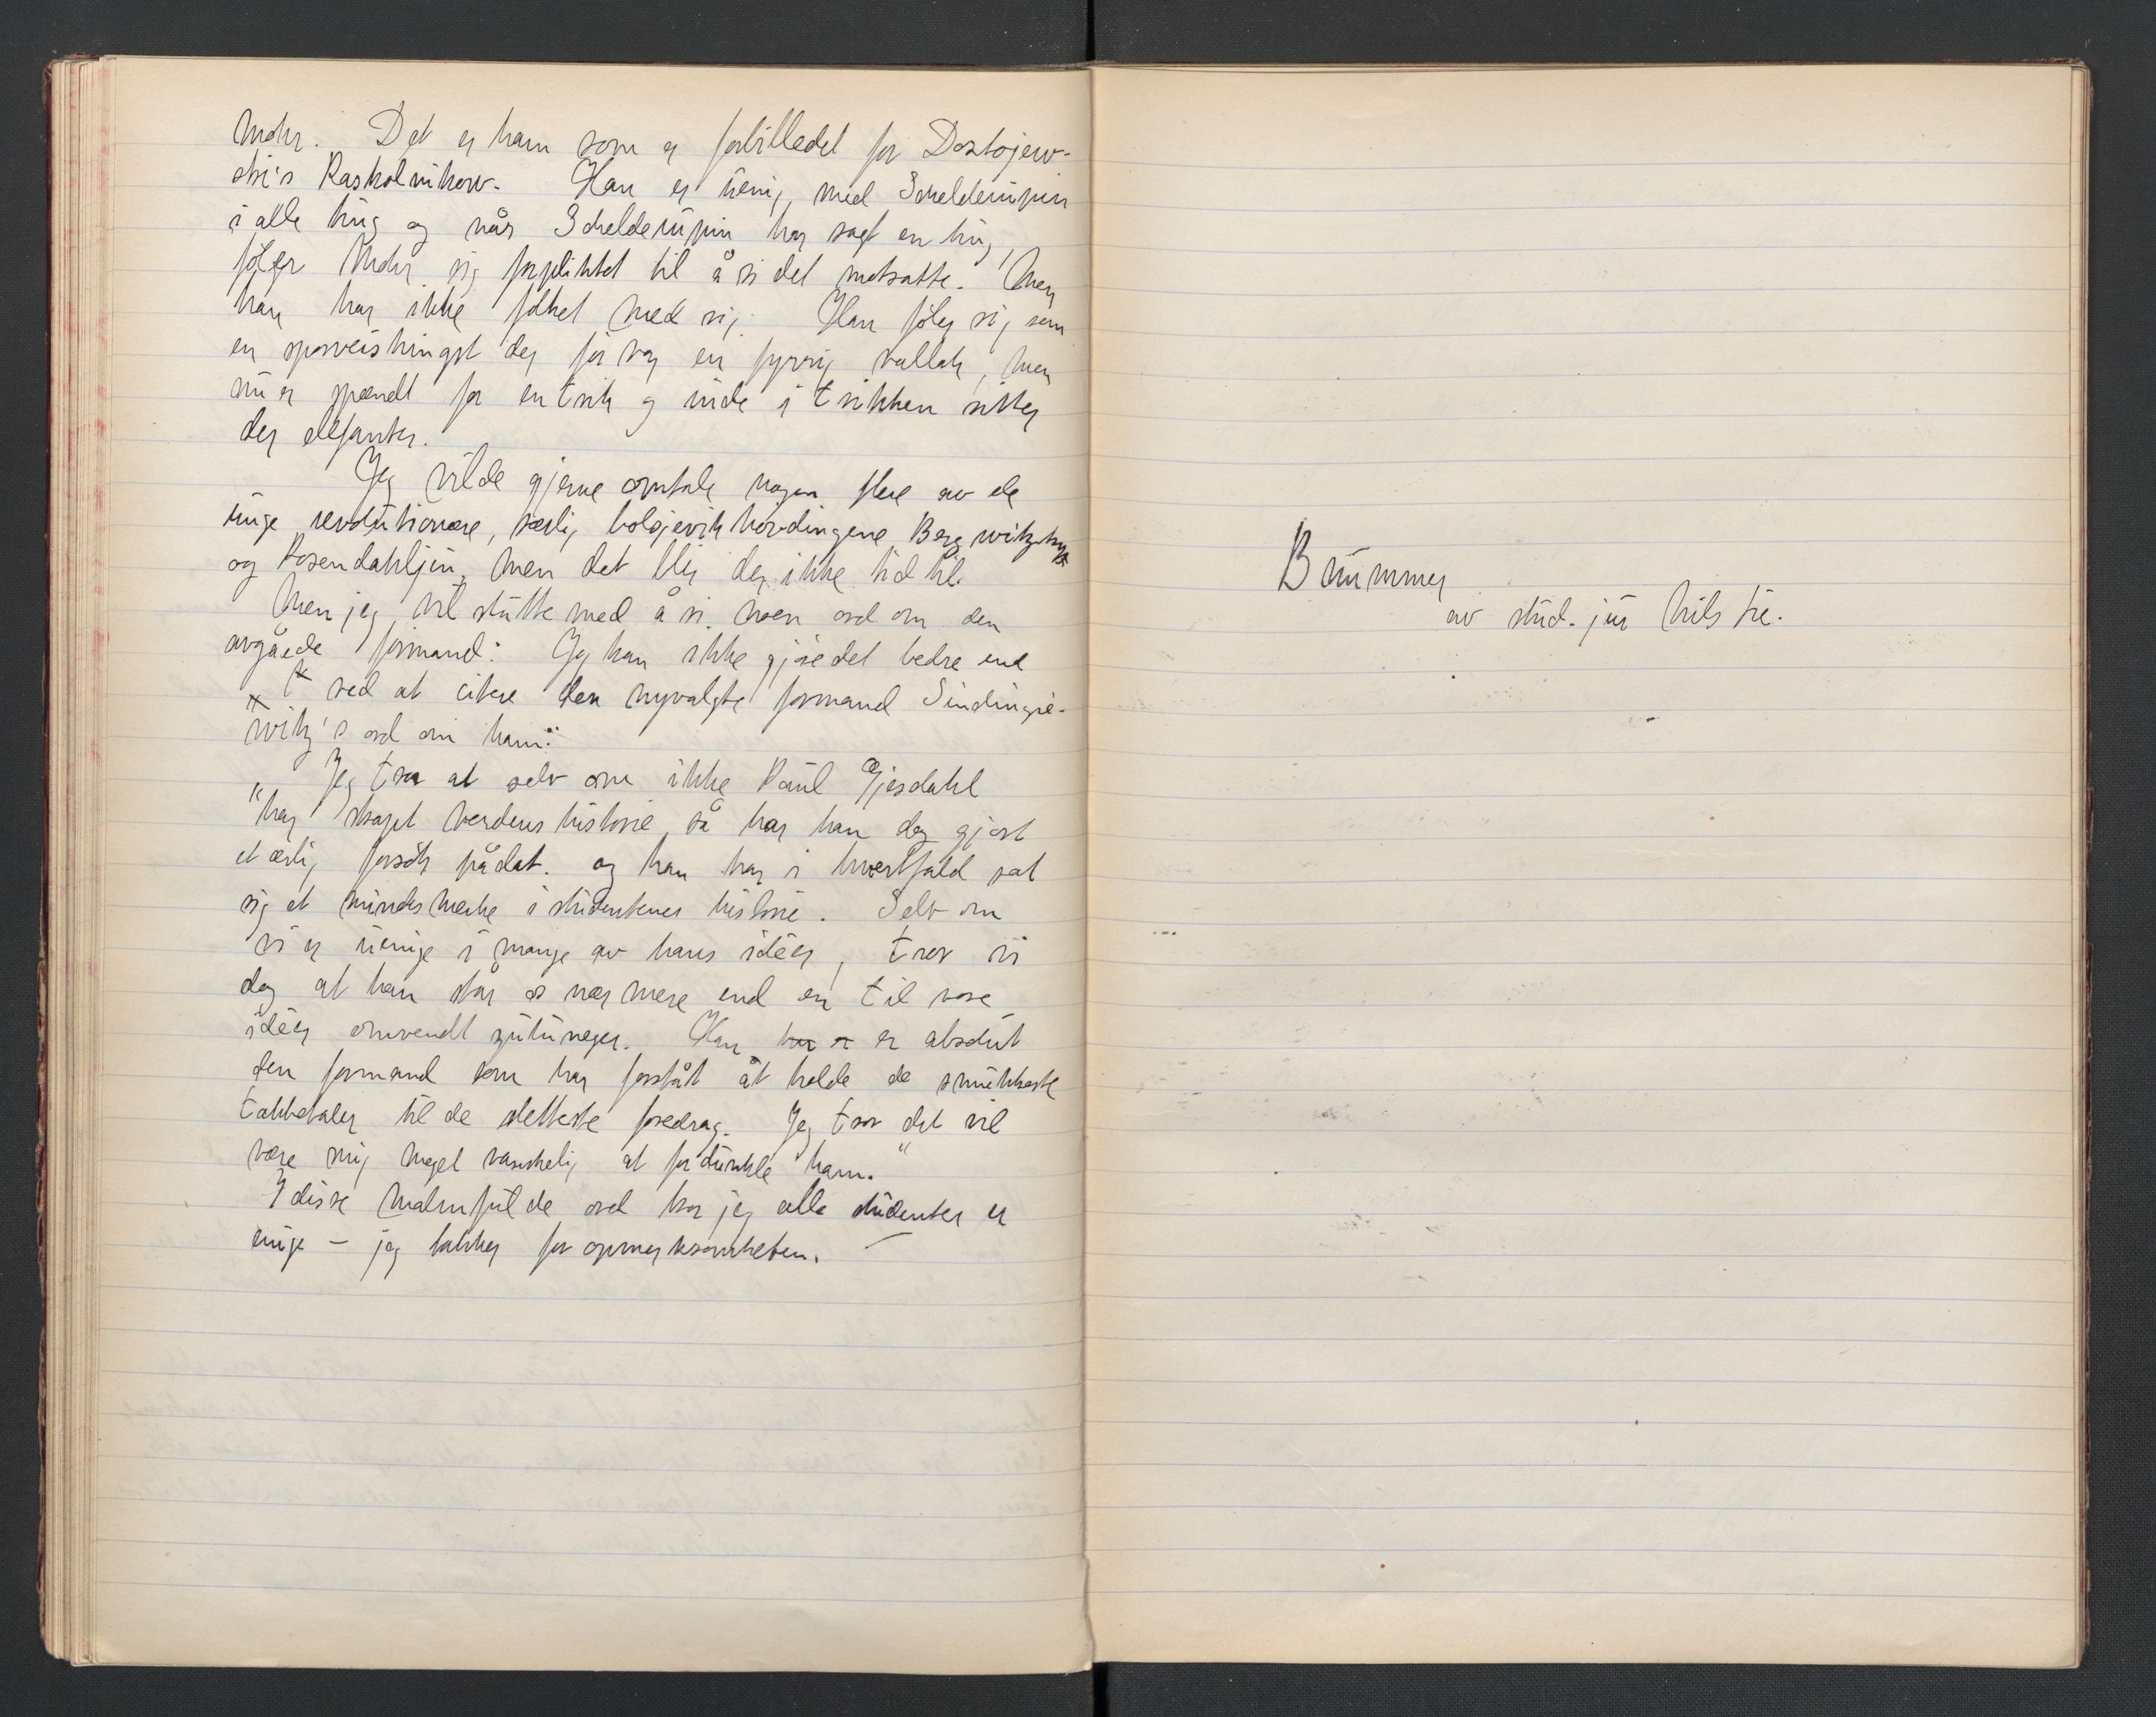 Mohr. Det er ham som er forbilledet for Dostojew-
ski's Raskolnikow. Han er uenig med Schelderupin
i alle ting og når Schelderupin har sagt en ting,
föler Mohr sig forpliktet til å si det motsatte. Men
han har ikke folket med sig. Han föler sig som
en sporveishingst der för var en fyrrig vallak, men
nu er spændt for en trik og inde i trikken sitter
der elefanter.
Jeg vilde gjerne omtale nogen flere av de
unge revolutionære, særlig bolsjevikhövdingene Berg
og Rosendahljin, men det blir der ikke tid til.
Men jeg vil slutte med å si noen ord om den
avgåede formand: Jeg kan ikke gjöre det bedre end
ved at citere den nyvalgte formand Sindingie-
witz's ord om ham:
"Jeg tror at selv om ikke Paul Gjesdahl
har skapt verdenshistorie, så har han dog gjort
et ærlig forsök på det. og han har i hvertfald sat
sig et mindesmerke i studentenes historie. Selv om
vi er uenige i mange av hans idéer, tror vi
dog at han står os nærmere end en til vore
idéer omvendt zuluneger. Han har er er absolut
den formand som har forståt åt holde de smukkeste
takketaler til de sletteste foredrag. Jeg tror det vil
være mig meget vanskelig at fordunkle ham."
I disse malmfulde ord tror jeg alle studenter er
enige - jeg takker for opmerksomheten. —
Brummer
av stud. jur Nils Lie.